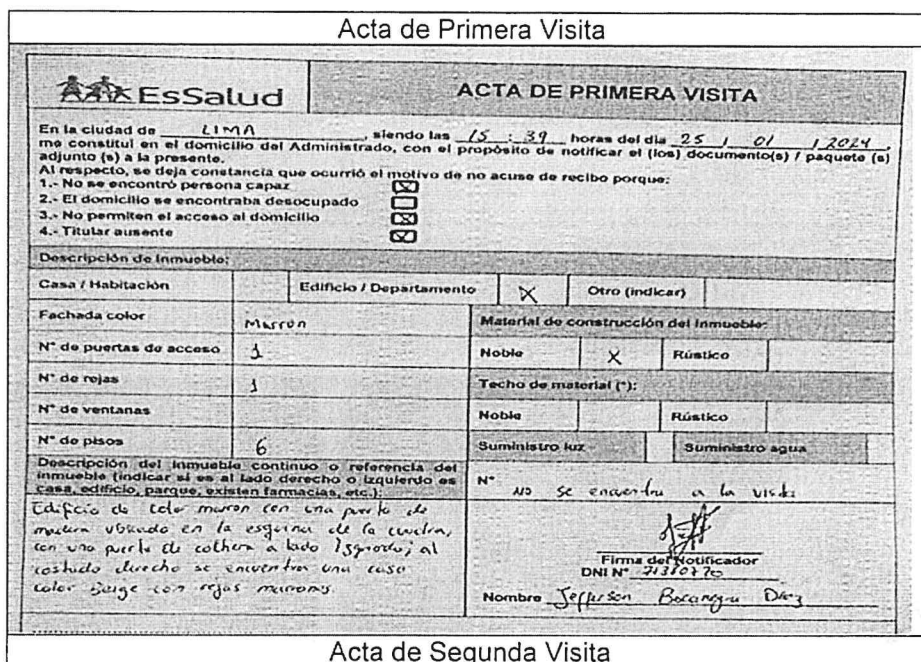 Acta de Primera Visita
EsSalud
ACTA DE PRIMERA VISITA
En la ciudad de LIMA, siendo las 15 : 39 horas del día 25 / 01 / 2024,
me constituí en el domicilio del Administrado, con el propósito de notificar el (los) documento(s) / paquete (s)
adjunto (s) a la presente.
Al respecto, se deja constancia que ocurrió el motivo de no acuse de recibo porque:
1.- No se encontró persona capaz
2.- El domicilio se encontraba desocupado
3.- No permiten el acceso al domicilio
4.- Titular ausente
Descripción de Inmueble:
Casa / Habitación Edificio / Departamento X Otro (indicar)
Fachada color Marron
Material de construcción del Inmueble:
N° de puertas de acceso 1
Noble X Rústico
N° de rejas 1
Techo de material (*):
N° de ventanas
Noble Rústico
N° de pisos 6
Suministro luz Suministro agua
Descripción del inmueble continuo o referencia del
inmueble (indicar si es al lado derecho o izquierdo es
casa, edificio, parque, existen farmacias, etc.):
N° No se encuentra a la vista
Edificio de color marron con una puerta de
madera ubicado en la esquina de la cuadra,
con una puerta de cochera a lado; al
costado derecho se encuentra una casa
color Beige con rejas marrones.
Firma del Notificador
DNI N°
Nombre Jefferson Bocanegra
Acta de Segunda Visita